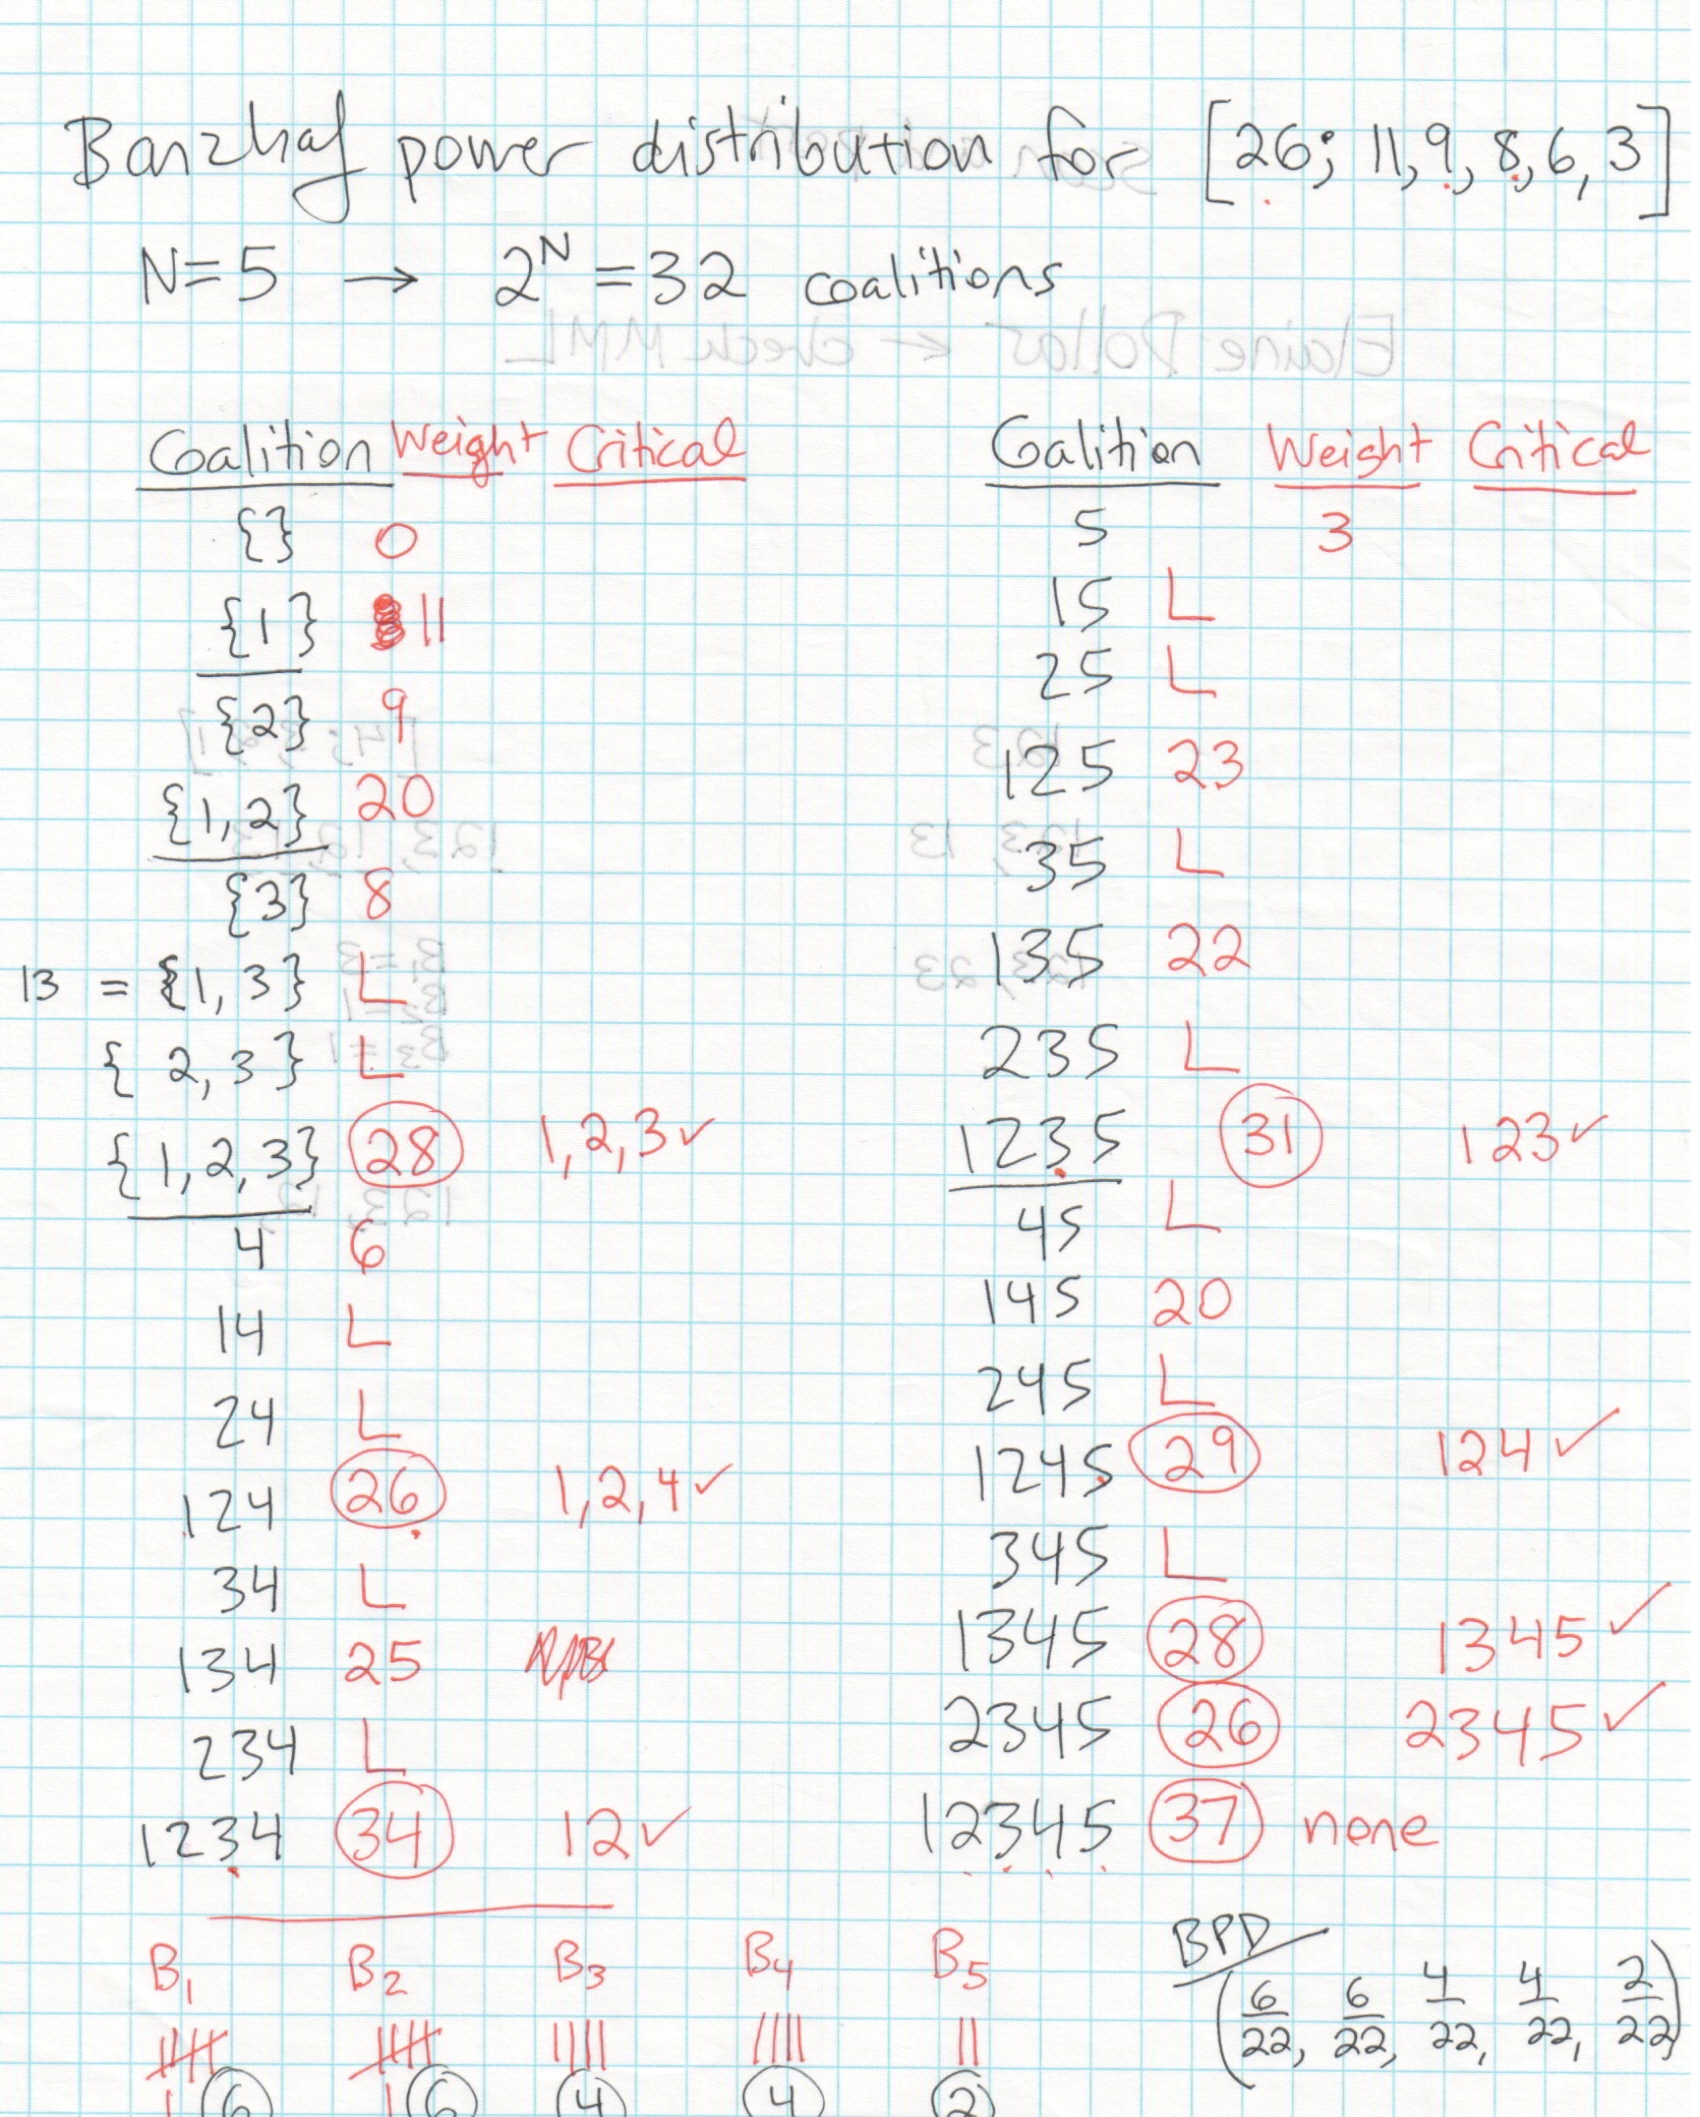 Banzhaf power distribution for [26; 11, 9, 8, 6, 3]
N=5 → 2^N = 32 coalitions
Elaine Dollas ← check MML
Coalition Weight Critical
{} 0
{1} 11
{2} 9
{1,2} 20
{3} 8
13 = {1, 3} L
{ 2, 3 } L
{ 1, 2, 3} 28 1, 2, 3 ✓
4 6
14 L
24 L
124 26 1, 2, 4 ✓
34 L
134 25
234 L
1234 34 12 ✓
Coalition Weight Critical
5 3
15 L
25 L
125 23
35 L
135 22
235 L
1235 31 123 ✓
45 L
145 20
245 L
1245 29 124 ✓
345 L
1345 28 1345 ✓
2345 26 2345 ✓
12345 37 none
B1 B2 B3 B4 B5
6 6 4 4 2
BPD
(6/22, 6/22, 4/22, 4/22, 2/22)